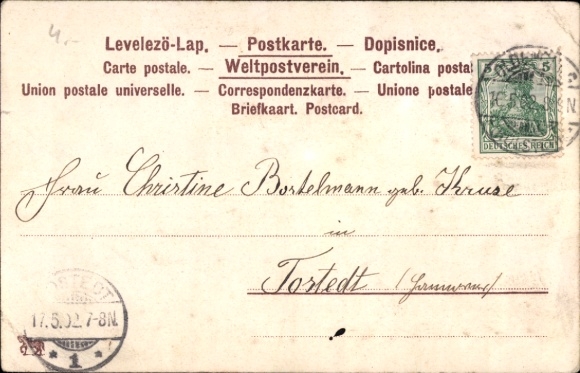 4.-
Levelezö-Lap. — Postkarte. — Dopisnice.
Carte postale. — Weltpostverein. — Cartolina postal
Union postale universelle. — Correspondenzkarte. — Unione postale
Briefkaart. Postcard.
5 5
DEUTSCHES REICH
Frau Christine Bortelmann geb. Kruse
in
Tostedt (Hannover)
TOSTEDT
17.5.02.7-8N.
* 1 *